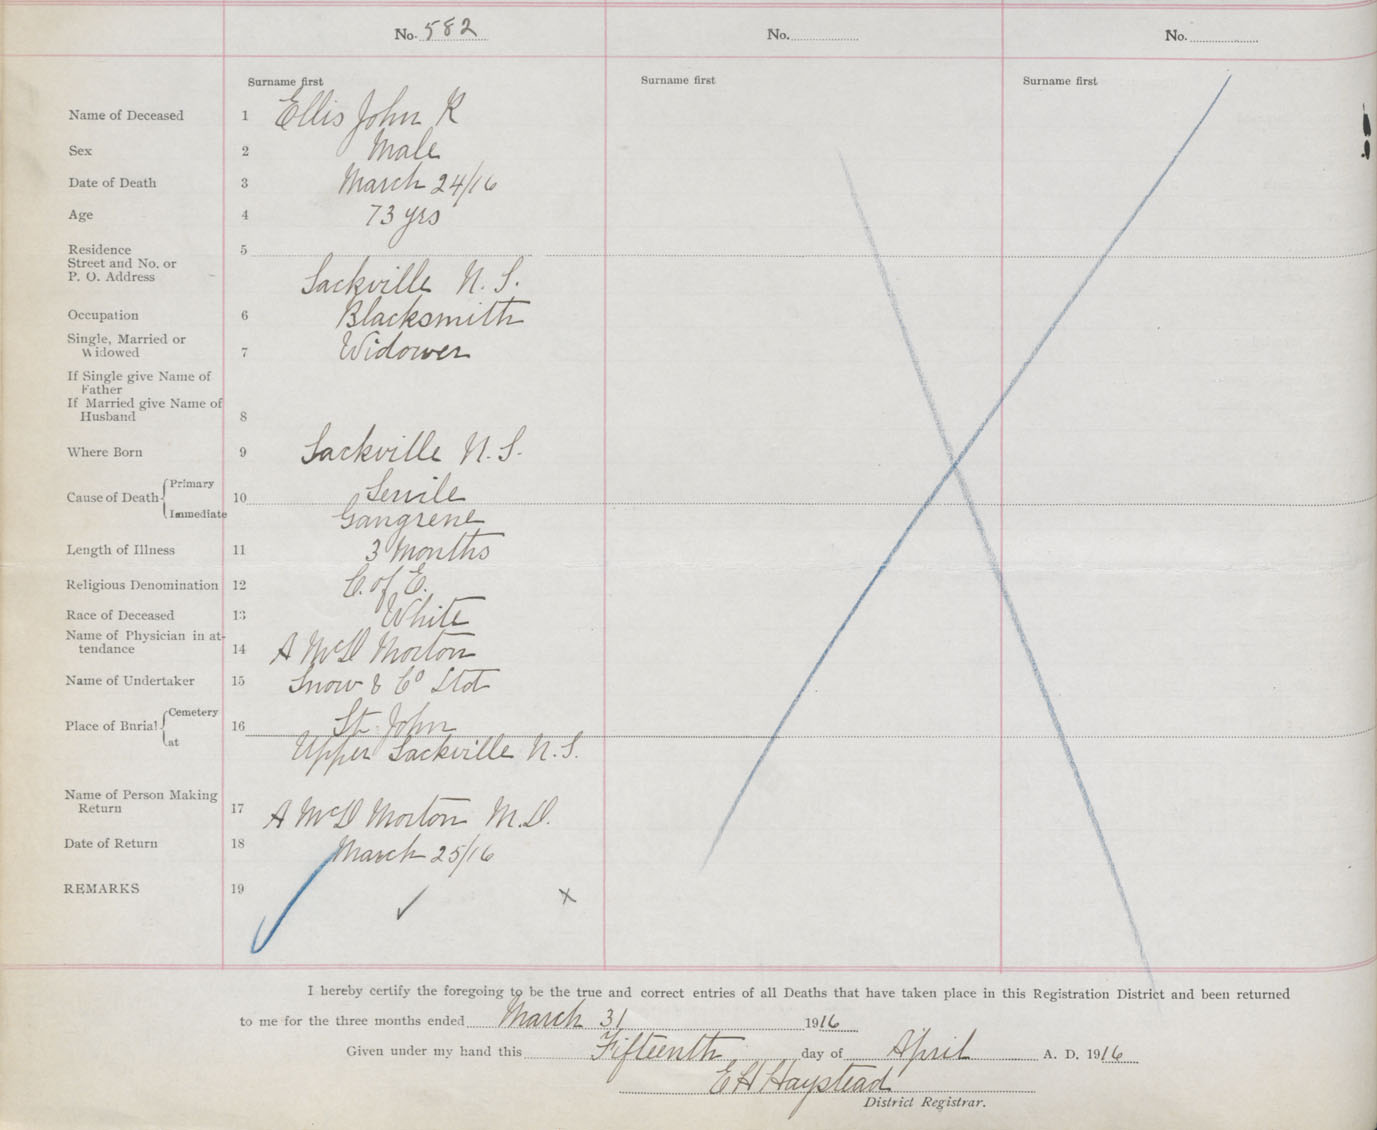 No. 582 No. No.
Surname first Surname first Surname first
Name of Deceased 1 Ellis John R
Sex 2 Male
Date of Death 3 March 24/16
Age 4 73 yrs
Residence 5
Street and No. or
P. O. Address Sackville N. S.
Occupation 6 Blacksmith
Single, Married or
Widowed 7 Widower
If Single give Name of
Father
If Married give Name of
Husband 8
Where Born 9 Sackville N. S.
Cause of Death Primary 10 Senile
Immediate Gangrene
Length of Illness 11 3 Months
Religious Denomination 12 C. of E.
Race of Deceased 13 White
Name of Physician in at-
tendance 14 A McD Morton
Name of Undertaker 15 Snow & Co Ltd
Place of Burial Cemetery 16 St. John
at Upper Sackville N. S.
Name of Person Making
Return 17 A McD Morton M. D.
Date of Return 18 March 25/16
REMARKS 19
I hereby certify the foregoing to be the true and correct entries of all Deaths that have taken place in this Registration District and been returned
to me for the three months ended March 31 1916
Given under my hand this Fifteenth day of April A. D. 1916
E H Haystead
District Registrar.